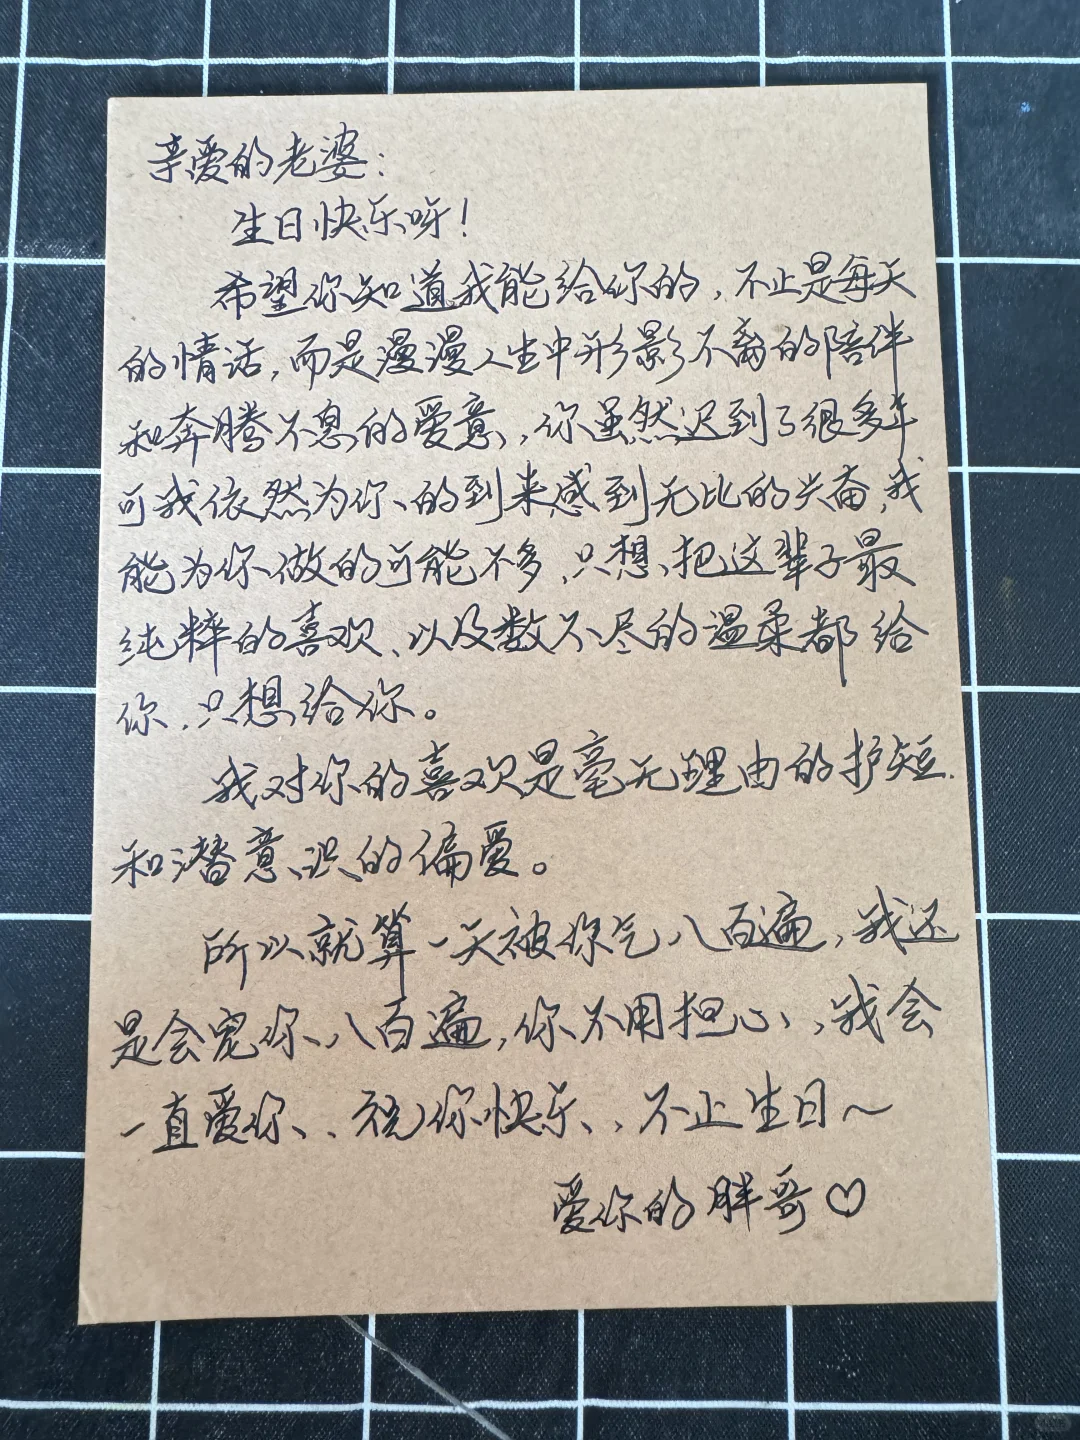 亲爱的老婆：
生日快乐呀！
希望你知道我能给你的，不止是每天
的情话，而是漫漫人生中形影不离的陪伴
和奔腾不息的爱意，你虽然迟到了很多年
可我依然为你的到来感到无比的兴奋，我
能为你做的可能不多，只想把这辈子最
纯粹的喜欢、以及数不尽的温柔都给
你，只想给你。
我对你的喜欢是毫无理由的护短
和潜意识的偏爱。
所以就算一天被你气八百遍，我还
是会宠你八百遍，你不用担心，我会
一直爱你、祝你快乐，不止生日～
爱你的胖哥♡